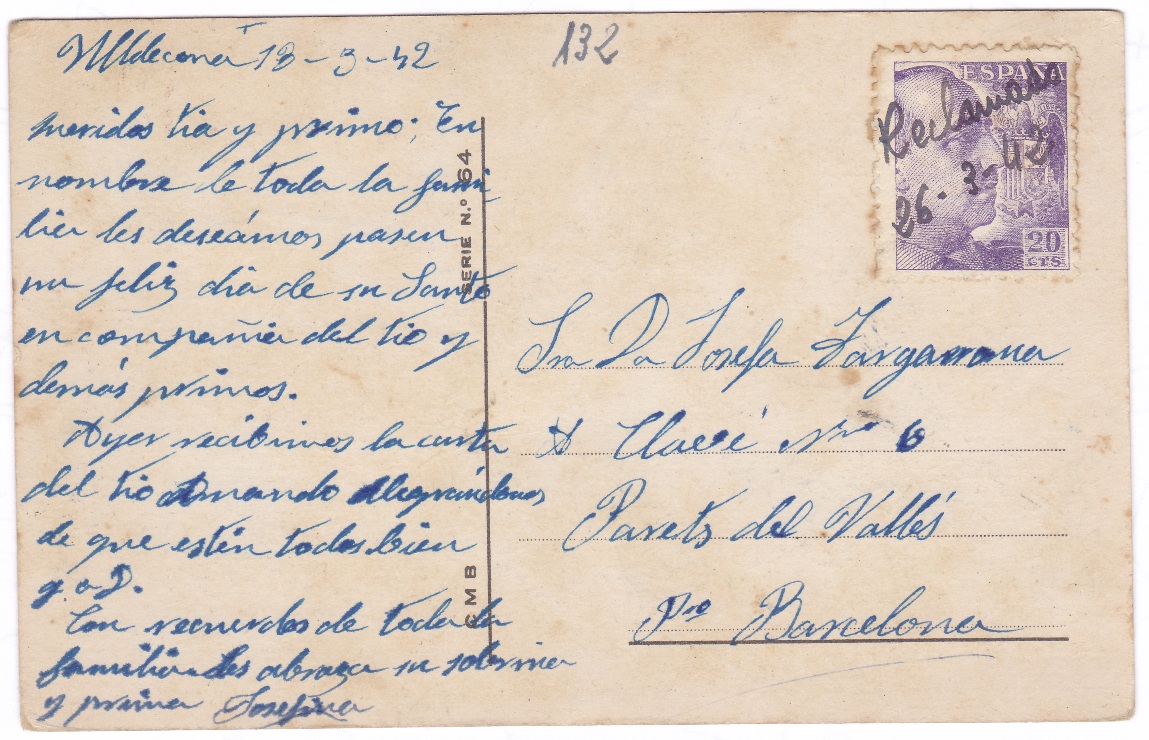 Ulldecona 18-3-42
132
Queridos tia y primo; En
nombre de toda la fami
lia les deseámos pasen
un feliz dia de su Santo
en compañia del tio y
demás primos.
Ayer recibimos la carta
del tio Amando alegrándonos
de que estén todos bien
g. a D.
Con recuerdos de toda la
familia les abraza su sobrina
y prima Josefina
SERIE N.º 64
C M B
ESPAÑA
20
CTS
Reclamado
26-3-42
Sra Da Josefa
A Clavé Nro 6
Parets del Vallés
Pro Barcelona